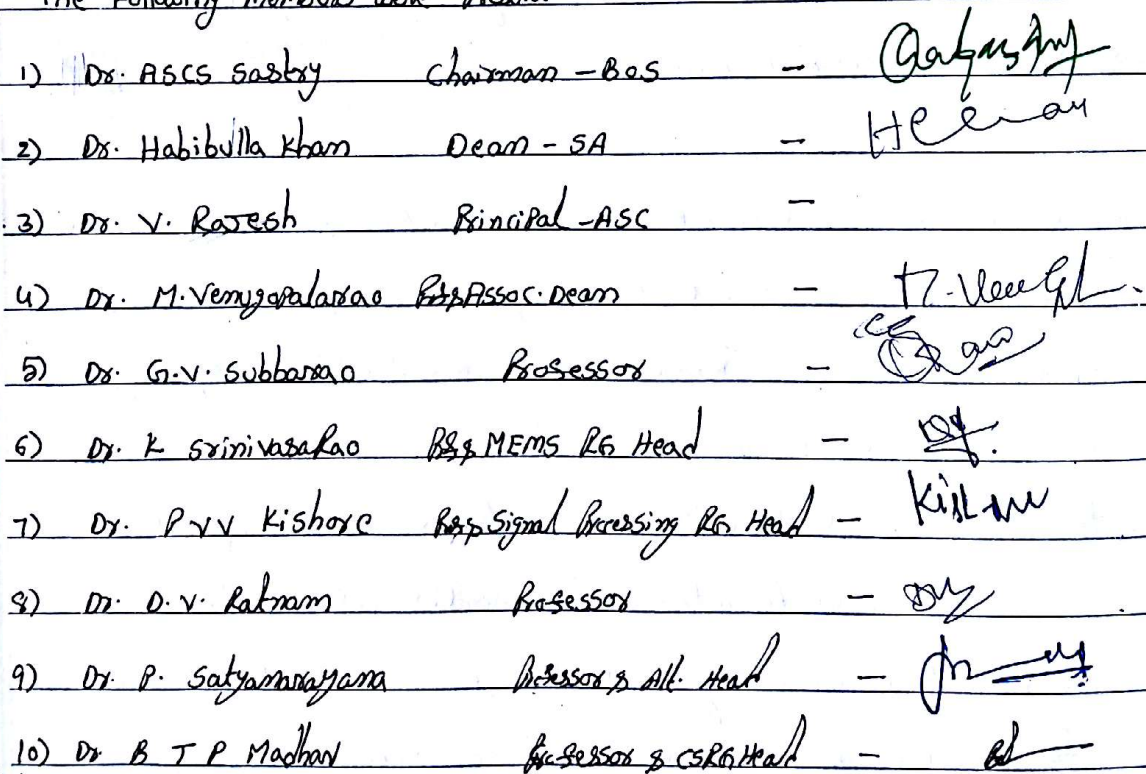 The Following Members were Present
1) Dr. ASCS Sastry Chairman - BoS -
2) Dr. Habibulla Khan Dean - SA -
3) Dr. V. Rajesh Principal - ASC -
4) Dr. M. Venugopalarao Prof & Assoc. Dean - M. Venu
5) Dr. G.V. Subbarao Professor - Rao
6) Dr. K Srinivasa Rao Prof & MEMS RG Head -
7) Dr. P V V Kishore Prof & Signal Processing RG Head - Kishore
8) Dr. D. V. Ratnam Professor -
9) Dr. P. Satyanarayana Professor & Alt. Head -
10) Dr B T P Madhav Professor & CSRG Head -